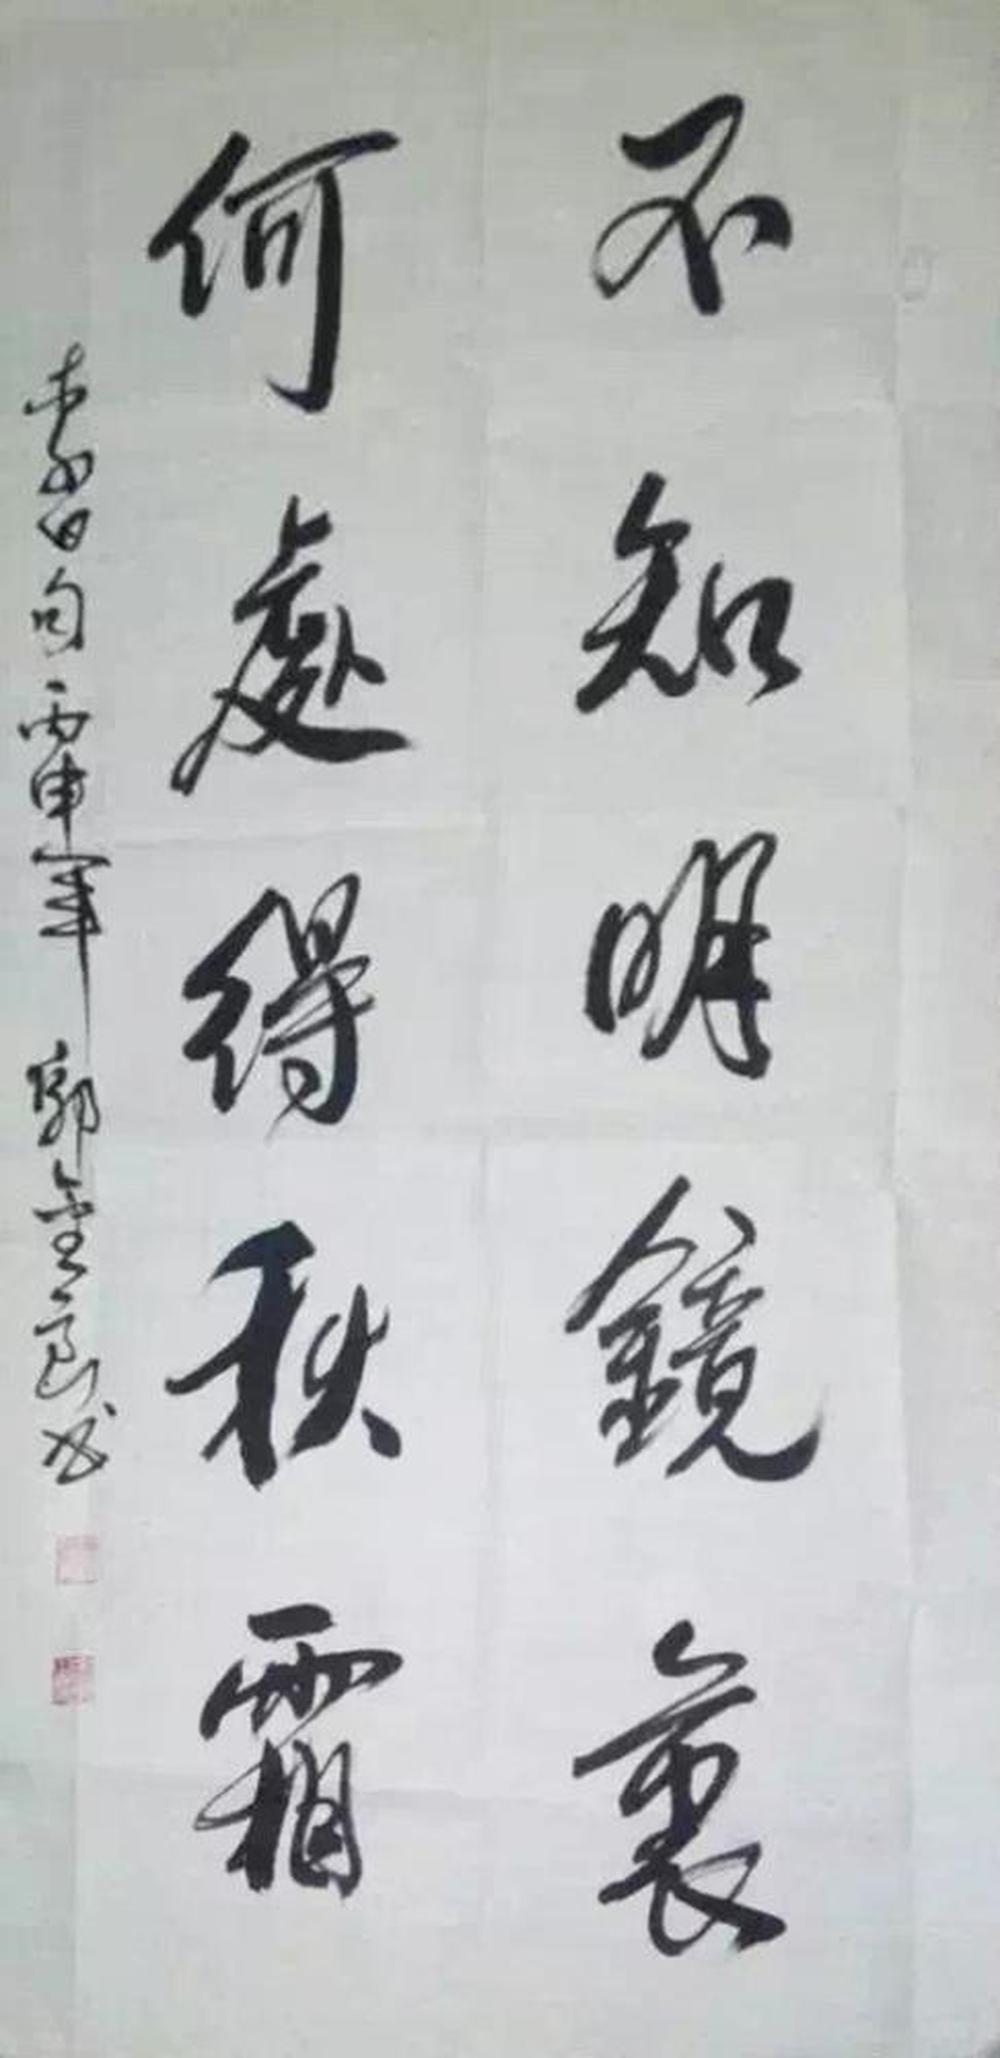 不知明鏡裏
何處得秋霜
李白句丙申年郭金高书